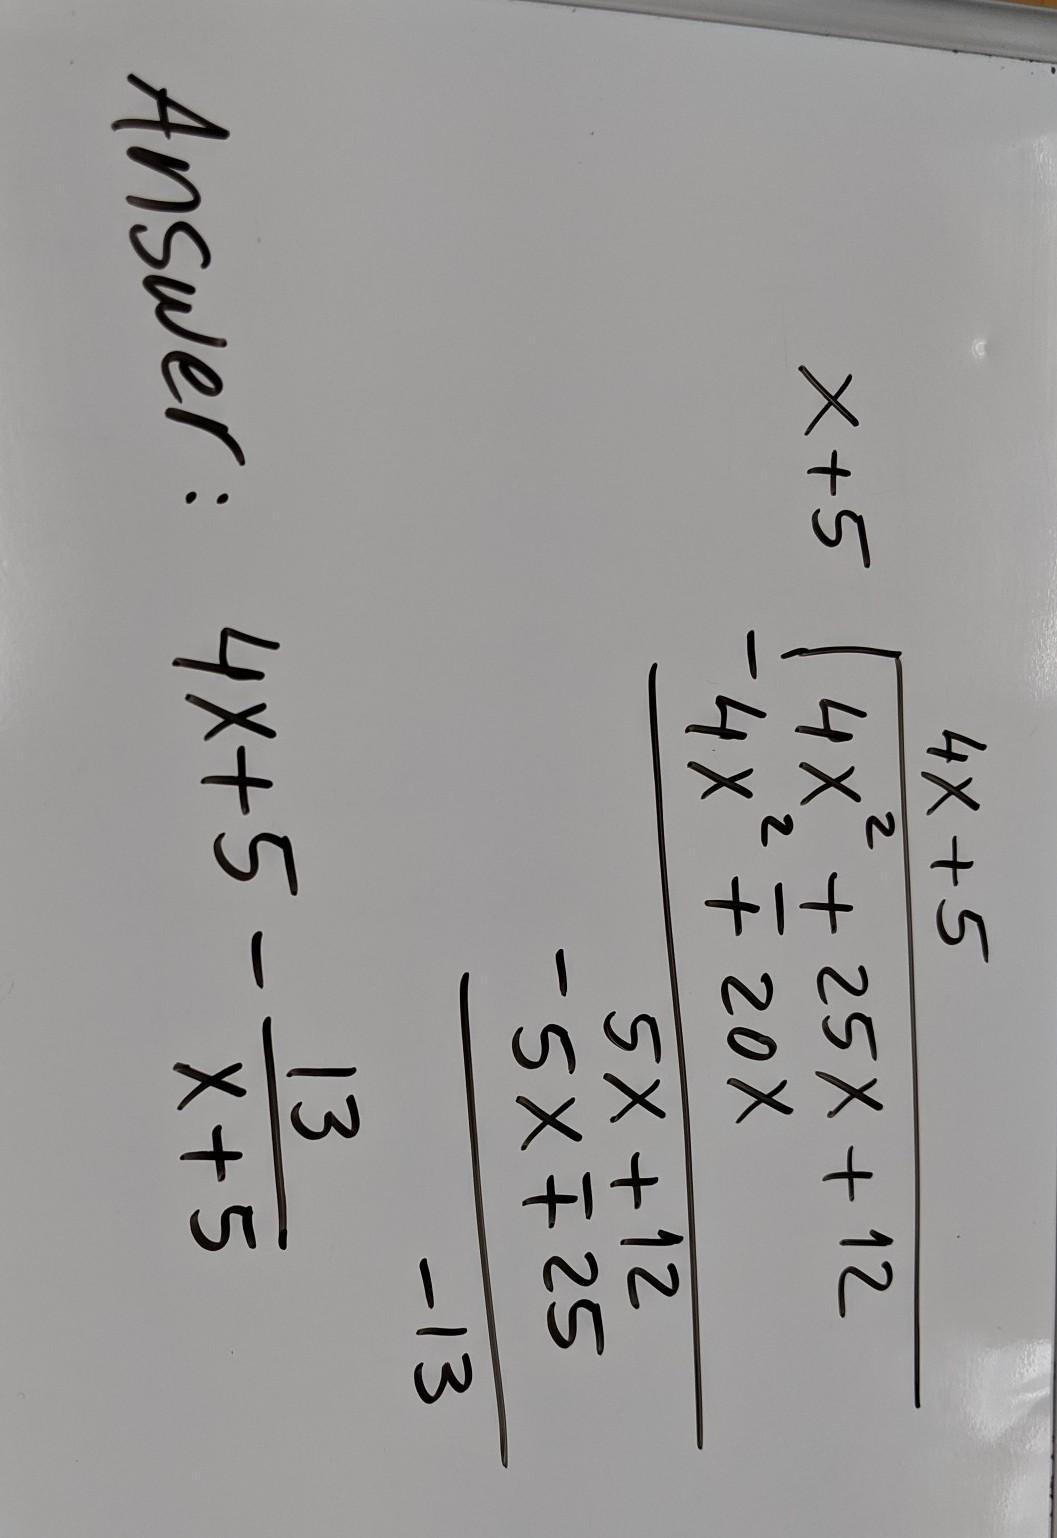 4x + 5
x + 5 | 4x² + 25x + 12
- 4x² ∓ 20x
5x + 12
- 5x ∓ 25
- 13
Answer: 4x + 5 - 13/(x + 5)